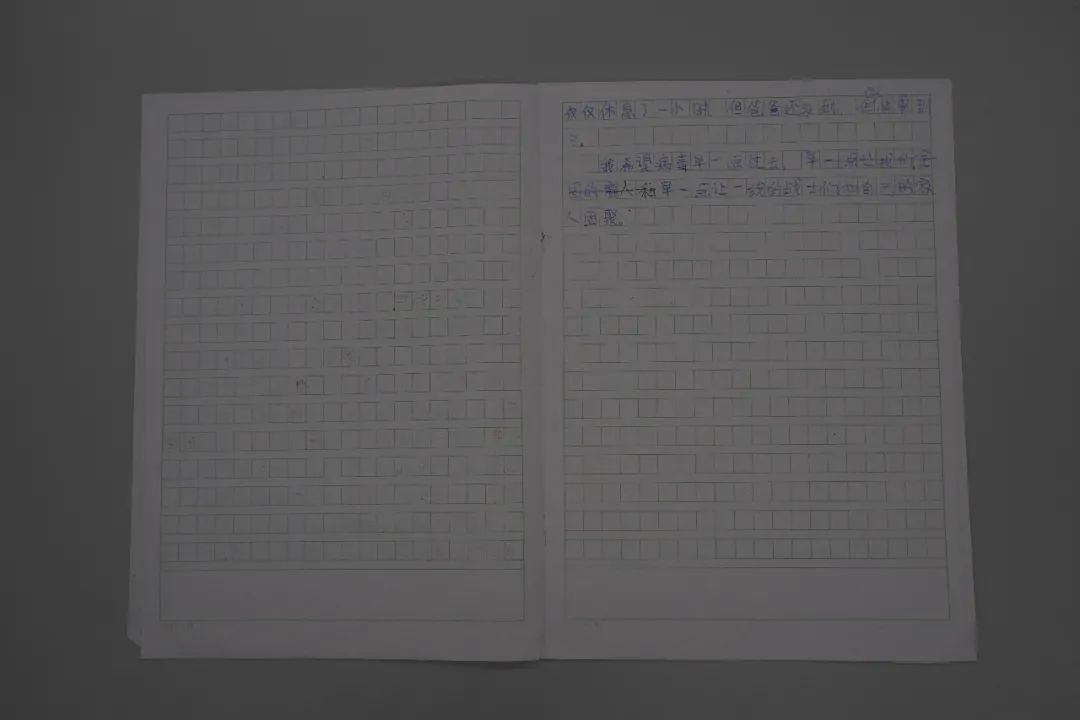 仅仅休息了一小时,但爸爸还没到,
了。
我希望病毒早一点过去,早一点让我们全
国的 人和早一点让一线的战士们和自己的家
人团聚。